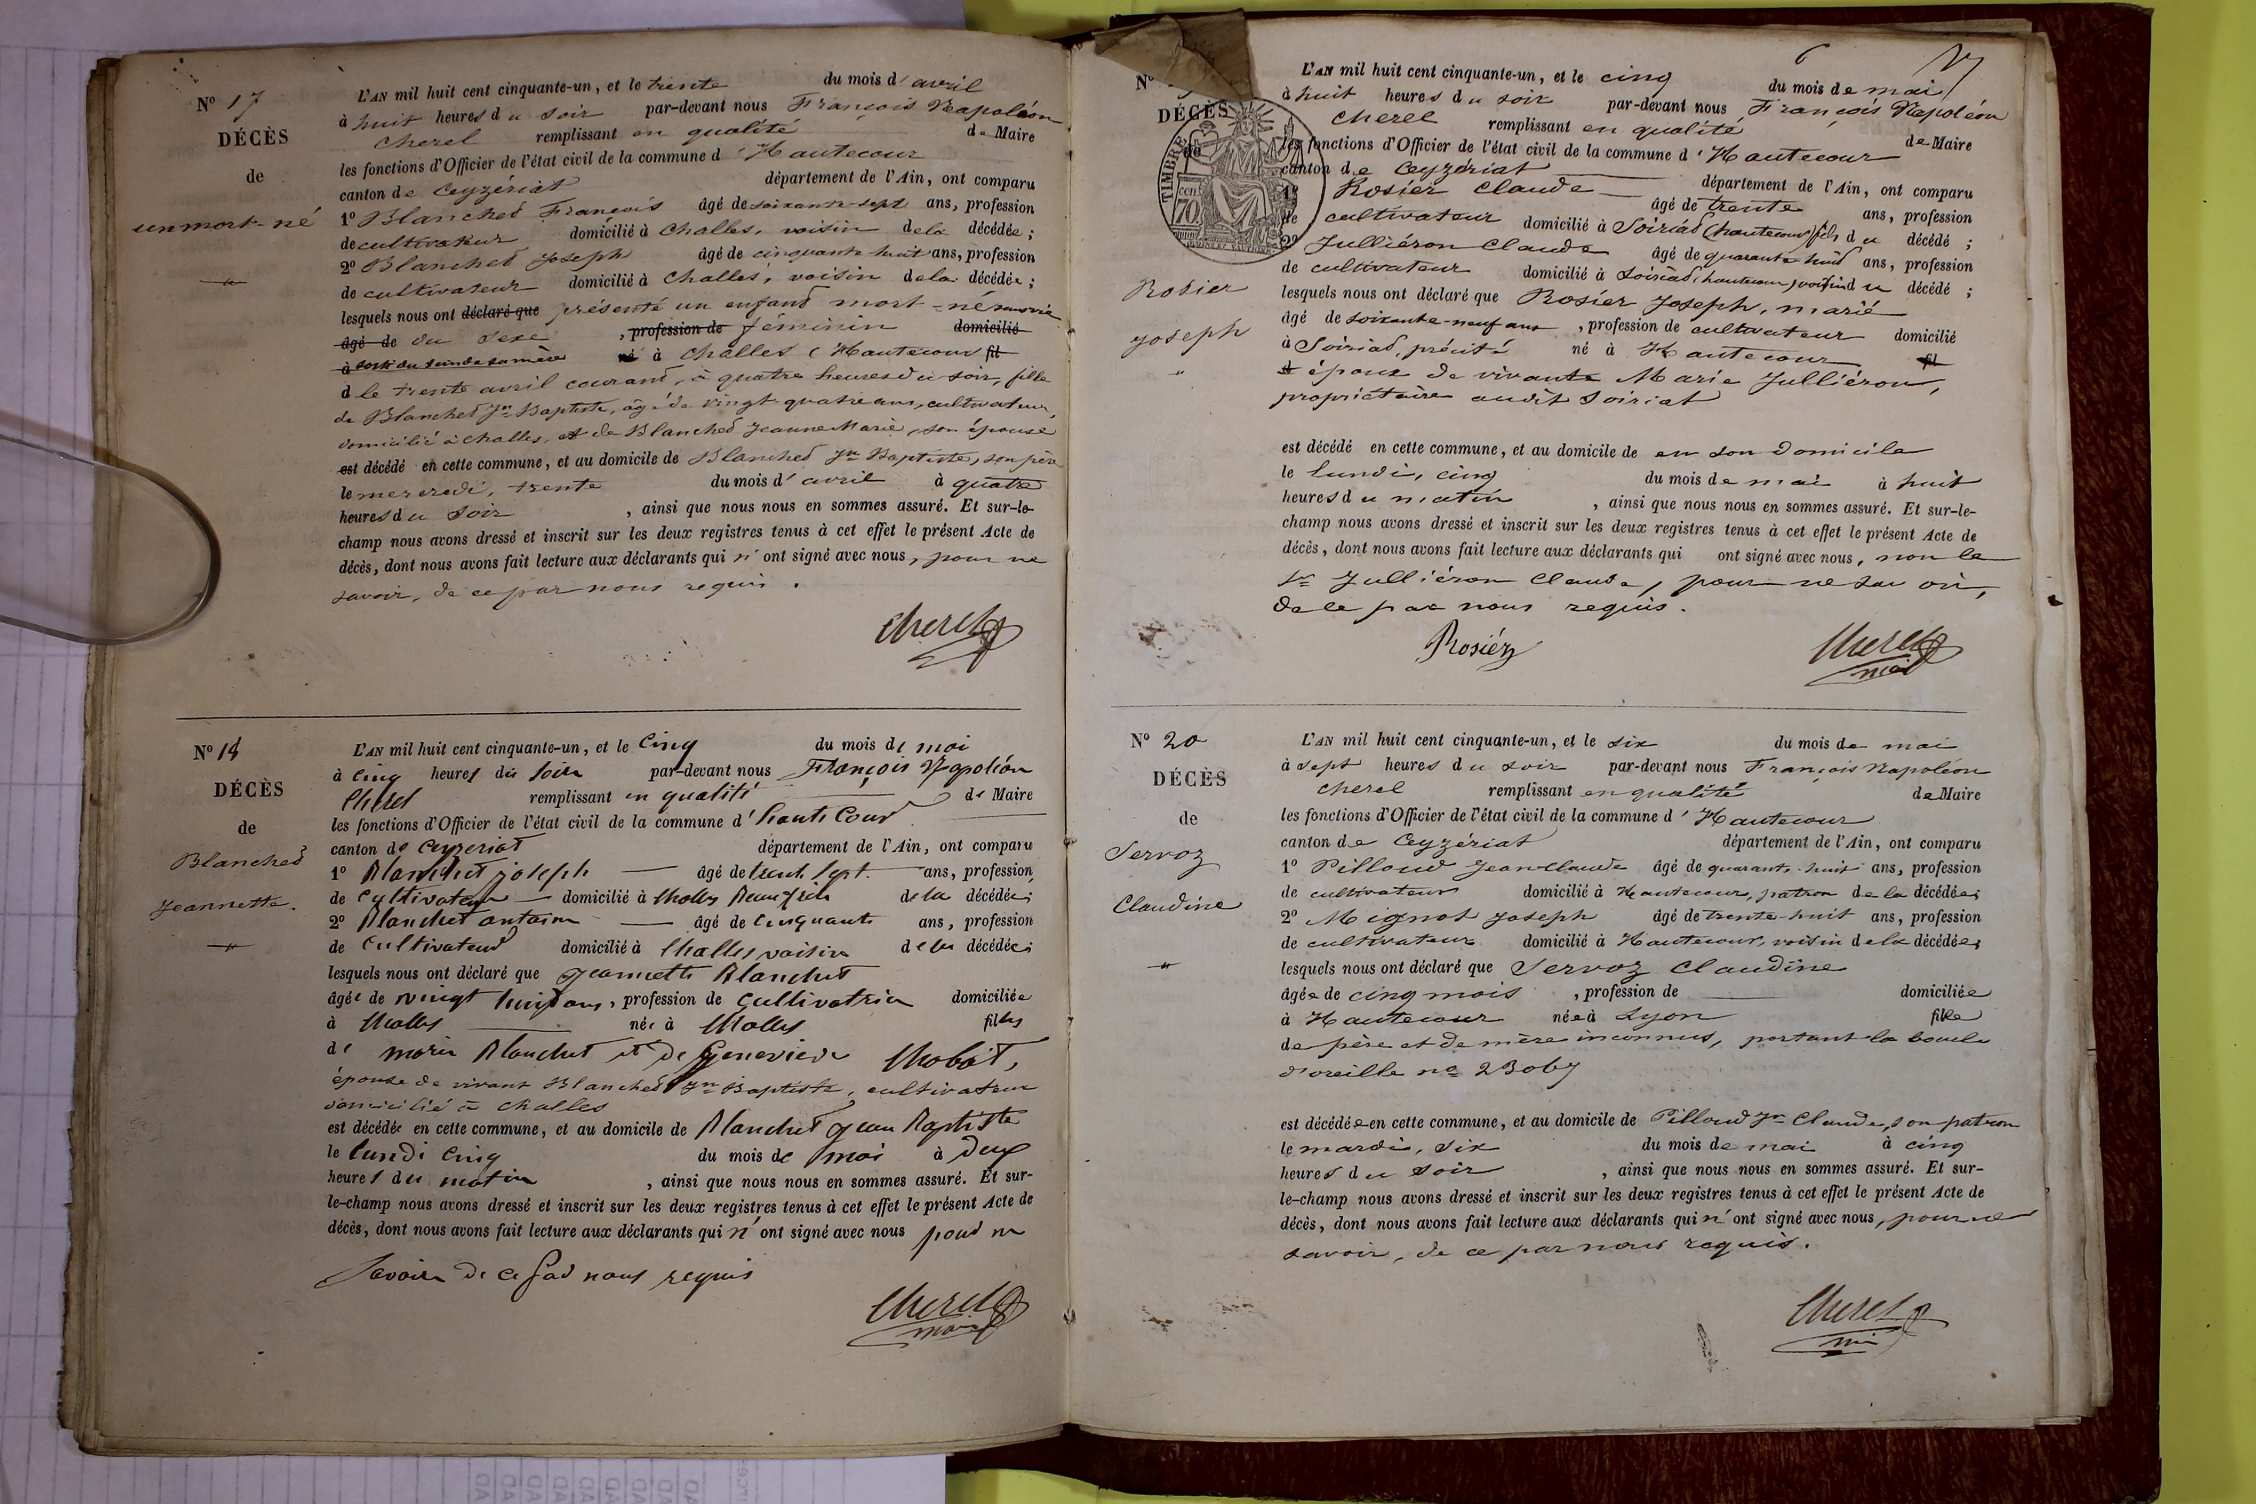 N° 17
DÉCÈS
de
un mort-né
L'AN mil huit cent cinquante-un, et le trente du mois d'avril
à huit heures du soir par-devant nous François Napoléon
Cherel remplissant en qualité de Maire
les fonctions d'Officier de l'état civil de la commune d'Hautecour
canton de Ceyzériat département de l'Ain, ont comparu
1° Blanched François âgé de soixante-sept ans, profession
de cultivateur domicilié à Challes, voisin de la décédée ;
2° Blanched Joseph âgé de cinquante huit ans, profession
de cultivateur domicilié à Challes, voisin de la décédée ;
lesquels nous ont déclaré que présenté un enfand mort-né sans vie
âgé de du sexe , profession de féminin domicilié
à sorti du sein de sa mère né à Challes (Hautecour fil
d le trente avril courand, à quatre heures du soir, fille
de Blanched Jn Baptiste, âgé de vingt-quatre ans, cultivateur,
domicilié à Challes, et de Blanched Jeanne Marie, son épouse
est décédé en cette commune, et au domicile de Blanched Jn Baptiste, son père
le mercredi, trente du mois d'avril à quatre
heures du soir , ainsi que nous nous en sommes assuré. Et sur-le-
champ nous avons dressé et inscrit sur les deux registres tenus à cet effet le présent Acte de
décès, dont nous avons fait lecture aux déclarants qui n'ont signé avec nous, pour ne
savoir, de ce par nous requis.
Cherel
N° 18
DÉCÈS
de
Blanched
Jeannette.
L'AN mil huit cent cinquante-un, et le Cinq du mois de mai
à cinq heures du soir par-devant nous François Napoléon
Cherel remplissant en qualité de Maire
les fonctions d'Officier de l'état civil de la commune d'haute Cour
canton de Ceyzeriat département de l'Ain, ont comparu
1° Blanchet joseph âgé de trente sept ans, profession
de Cultivateur domicilié à Challes Beaufrère de la décédée ;
2° Blanchet antoine âgé de Cinquante ans, profession
de Cultivateur domicilié à Challes voisin de la décédée ;
lesquels nous ont déclaré que Jeannette Blanchet
âgée de vingt huit ans, profession de Cultivatrice domiciliée
à Challes née à Challes fille
de marie Blanchet et de Genevieve Chobot,
épouse de vivant Blanched Jn Baptiste, cultivateur
domicilié à Challes
est décédée en cette commune, et au domicile de Blanchet Jean Baptiste
le lundi Cinq du mois de mai à Deux
heures du matin , ainsi que nous nous en sommes assuré. Et sur-
le-champ nous avons dressé et inscrit sur les deux registres tenus à cet effet le présent Acte de
décès, dont nous avons fait lecture aux déclarants qui n'ont signé avec nous pour ne
Savoir De Ce par nous requis
Cherel
maire
N°
DÉCÈS
de
TIMBRE
70 cent
Rosier
Joseph
L'AN mil huit cent cinquante-un, et le cinq du mois de mai
à huit heures du soir par-devant nous François Napoléon
Cherel remplissant en qualité de Maire
les fonctions d'Officier de l'état civil de la commune d'Hautecour
canton de Ceyzériat département de l'Ain, ont comparu
1° Rosier Claude âgé de trente ans, profession
de cultivateur domicilié à Soiriad (hautecour) fils du décédé ;
2° Julliéron Claude âgé de quarante-huid ans, profession
de cultivateur domicilié à Soiriad, hautecour, voisin du décédé ;
lesquels nous ont déclaré que Rosier Joseph, marié
âgé de soixante-neuf ans , profession de cultivateur domicilié
à Soiriad, précité né à Hautecour fil
d époux de vivante Marie Julliéron,
propriétaire audit Soiriat
est décédé en cette commune, et au domicile de en son domicile
le lundi, cinq du mois de mai à huit
heures du matin , ainsi que nous nous en sommes assuré. Et sur-le-
champ nous avons dressé et inscrit sur les deux registres tenus à cet effet le présent Acte de
décès, dont nous avons fait lecture aux déclarants qui ont signé avec nous, non le
sr Julliéron Claude, pour ne savoir,
de ce par nous requis.
Rosiér
Cherel
mai
N° 20
DÉCÈS
de
Servoz
Claudine
L'AN mil huit cent cinquante-un, et le six du mois de mai
à sept heures du soir par-devant nous François Napoléon
Cherel remplissant en qualité de Maire
les fonctions d'Officier de l'état civil de la commune d'Hautecour
canton de Ceyzériat département de l'Ain, ont comparu
1° Pilloud Jean-Claude âgé de quarante-huit ans, profession
de cultivateur domicilié à Hautecour, patron de la décédée ;
2° Mignot Joseph âgé de trente-huit ans, profession
de cultivateur domicilié à Hautecour, voisin de la décédée ;
lesquels nous ont déclaré que Servoz Claudine
âgée de cinq mois , profession de domiciliée
à Hautecour née à Lyon fille
de père et de mère inconnus, portant la boucle
d'oreille no 23067
est décédée en cette commune, et au domicile de Pilloud Jn Claude, son patron
le mardi, six du mois de mai à cinq
heures du soir , ainsi que nous nous en sommes assuré. Et sur-
le-champ nous avons dressé et inscrit sur les deux registres tenus à cet effet le présent Acte de
décès, dont nous avons fait lecture aux déclarants qui n'ont signé avec nous, pour ne
savoir, de ce par nous requis.
Cherel